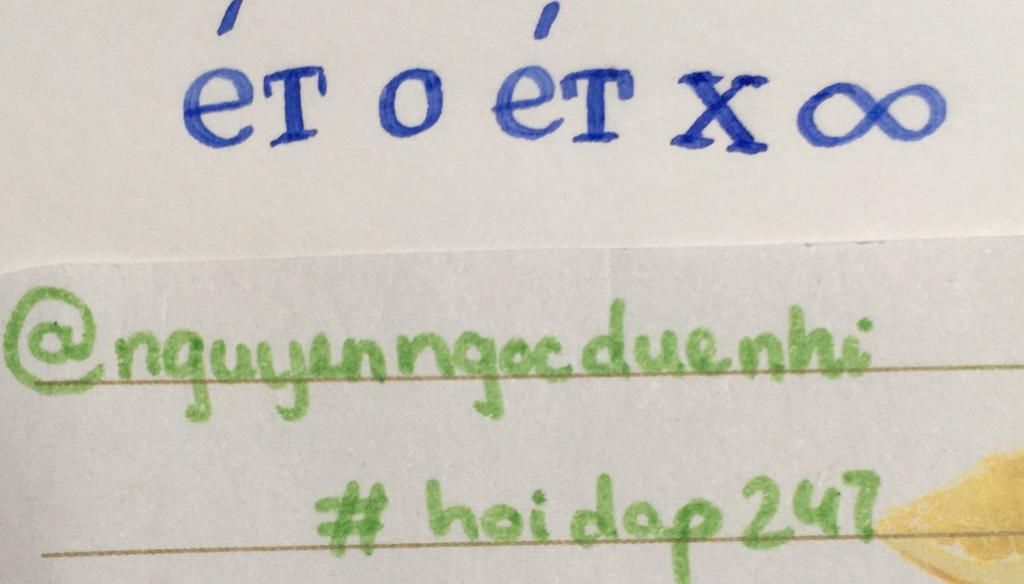 ét o ét x ∞
@nguyenngocduenhi
# hoidap247